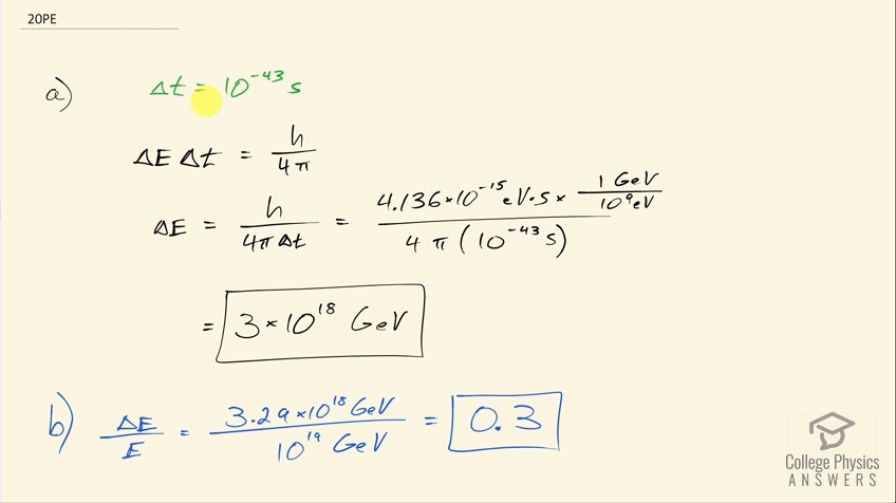 20PE
a) Δt = 10⁻⁴³ s
ΔE Δt = h / 4π
ΔE = h / 4πΔt = 4.136×10⁻¹⁵ eV·s × 1 GeV / 10⁹ eV / 4π(10⁻⁴³ s)
= 3×10¹⁸ GeV
b) ΔE / E = 3.29×10¹⁸ GeV / 10¹⁹ GeV = 0.3
College Physics
ANSWERS